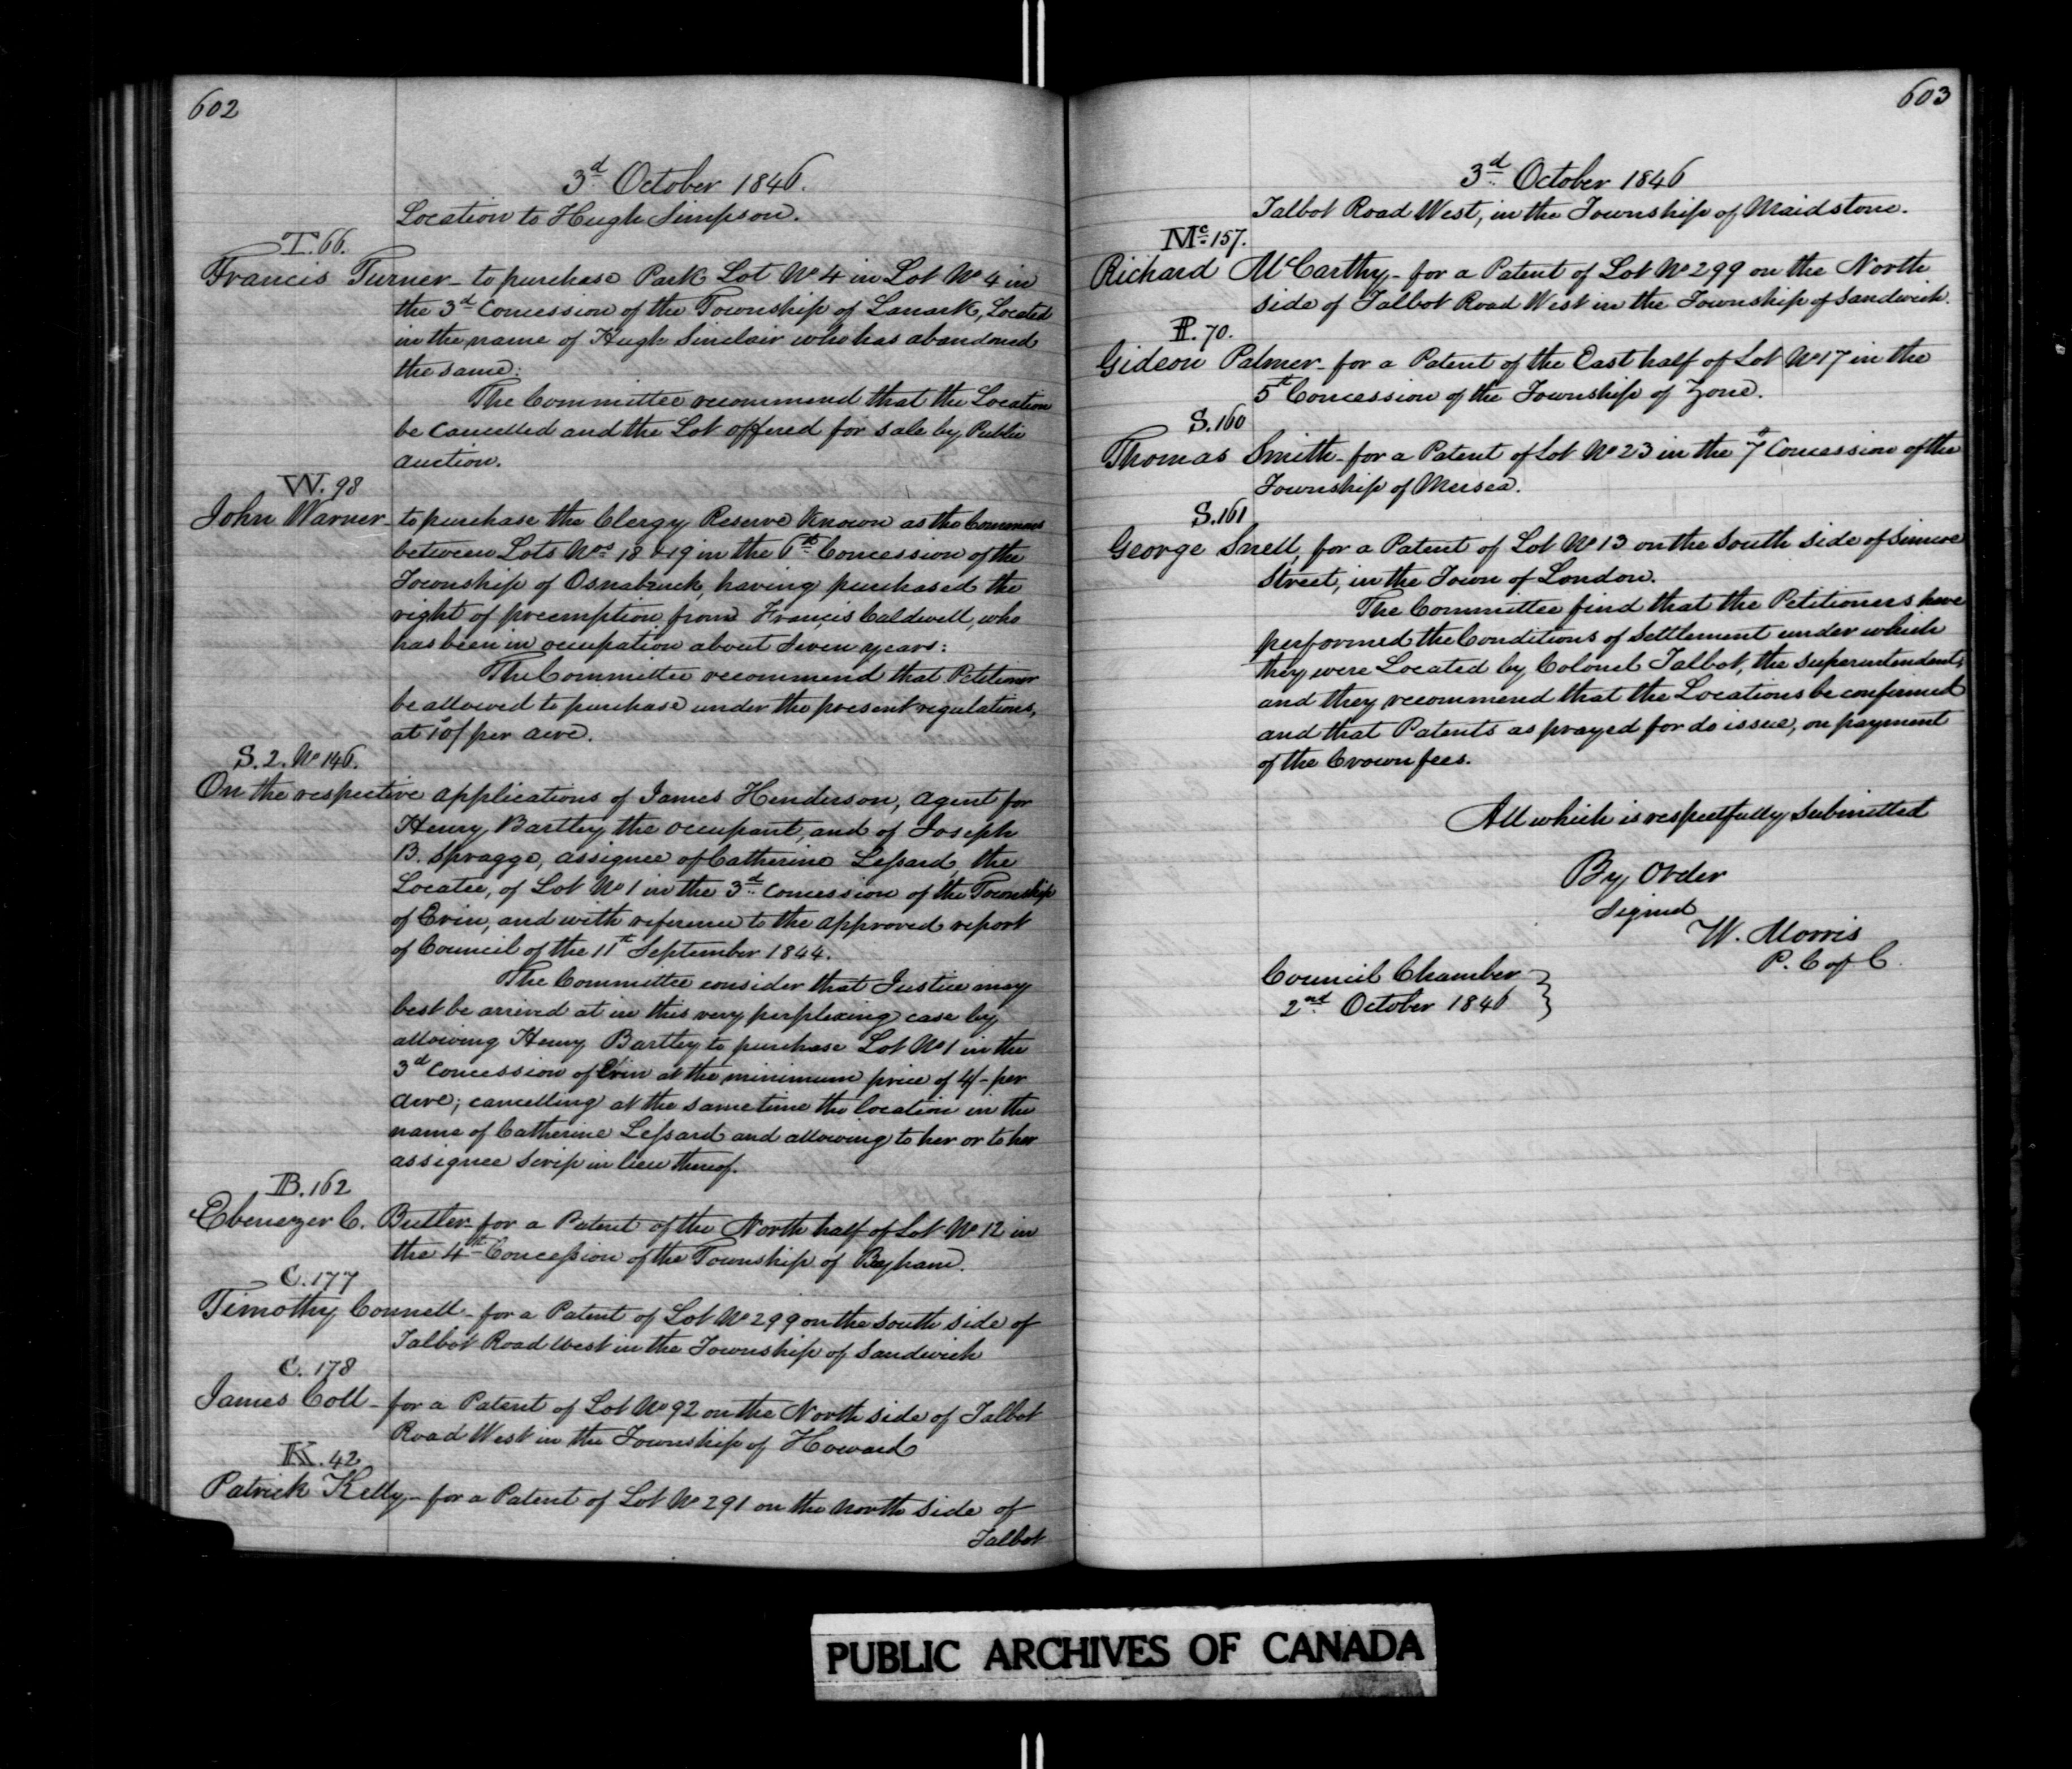 602
3d October 1846.
Location to Hugh Simpson.
T. 66.
Francis Turner - to purchase Park Lot No 4 in Lot No 4 in
the 3d Concession of the Township of Lanark, Located
in the name of Hugh Sinclair who has abandoned
the same:
The Committee recommend that the Location
be cancelled and the Lot offered for sale by Public
Auction.
W. 98
John Warner - to purchase the Clergy Reserve known as the Commons
between Lots Nos 18 & 19 in the 6th Concession of the
Township of Osnabruck, having purchased the
right of preemption from Francis Caldwell, who
has been in occupation about seven years:
The Committee recommend that Petitioner
be allowed to purchase under the present regulations,
at 10/ per acre.
S. 2. No 146.
On the respective applications of James Henderson, Agent for
Henry Bartley the occupant, and of Joseph
B. Spragge, assignee of Catherine Lessard, the
Locatee, of Lot No 1 in the 3d Concession of the Township
of Erin, and with reference to the approved report
of Council of the 11th September 1844.
The Committee consider that Justice may
best be arrived at in this very perplexing case by
allowing Henry Bartley to purchase Lot No 1 in the
3d Concession of Erin at the minimum price of 4/- per
acre; cancelling at the same time the location in the
name of Catherine Lessard and allowing to her or to her
assignee Scrip in lieu thereof.
B. 162
Ebenezer C. Butler - for a Patent of the North half of Lot No 12 in
the 4th Concession of the Township of Bayham.
C. 177
Timothy Connell - for a Patent of Lot No 299 on the south side of
Talbot Road West in the Township of Sandwich
C. 178
James Coll - for a Patent of Lot No 92 on the North side of Talbot
Road West in the Township of Howard
K. 42
Patrick Kelly - for a Patent of Lot No 291 on the north side of
Talbot
603
3d October 1846
Talbot Road West, in the Township of Maidstone.
Mc 157.
Richard McCarthy - for a Patent of Lot No 299 on the North
side of Talbot Road West in the Township of Sandwich.
P. 70.
Gideon Palmer - for a Patent of the East half of Lot No 17 in the
5th Concession of the Township of Zone.
S. 160
Thomas Smith - for a Patent of Lot No 23 in the 7th Concession of the
Township of Mersea.
S. 161
George Snell, for a Patent of Lot No 13 on the South side of Simcoe
Street, in the Town of London.
The Committee find that the Petitioners have
performed the Conditions of Settlement under which
they were Located by Colonel Talbot, the Superintendent,
and they recommend that the Locations be confirmed
and that Patents as prayed for do issue, on payment
of the Crown fees.
All which is respectfully Submitted
By Order
Signed
W. Morris
P. C of C.
Council Chamber
2nd October 1846
PUBLIC ARCHIVES OF CANADA